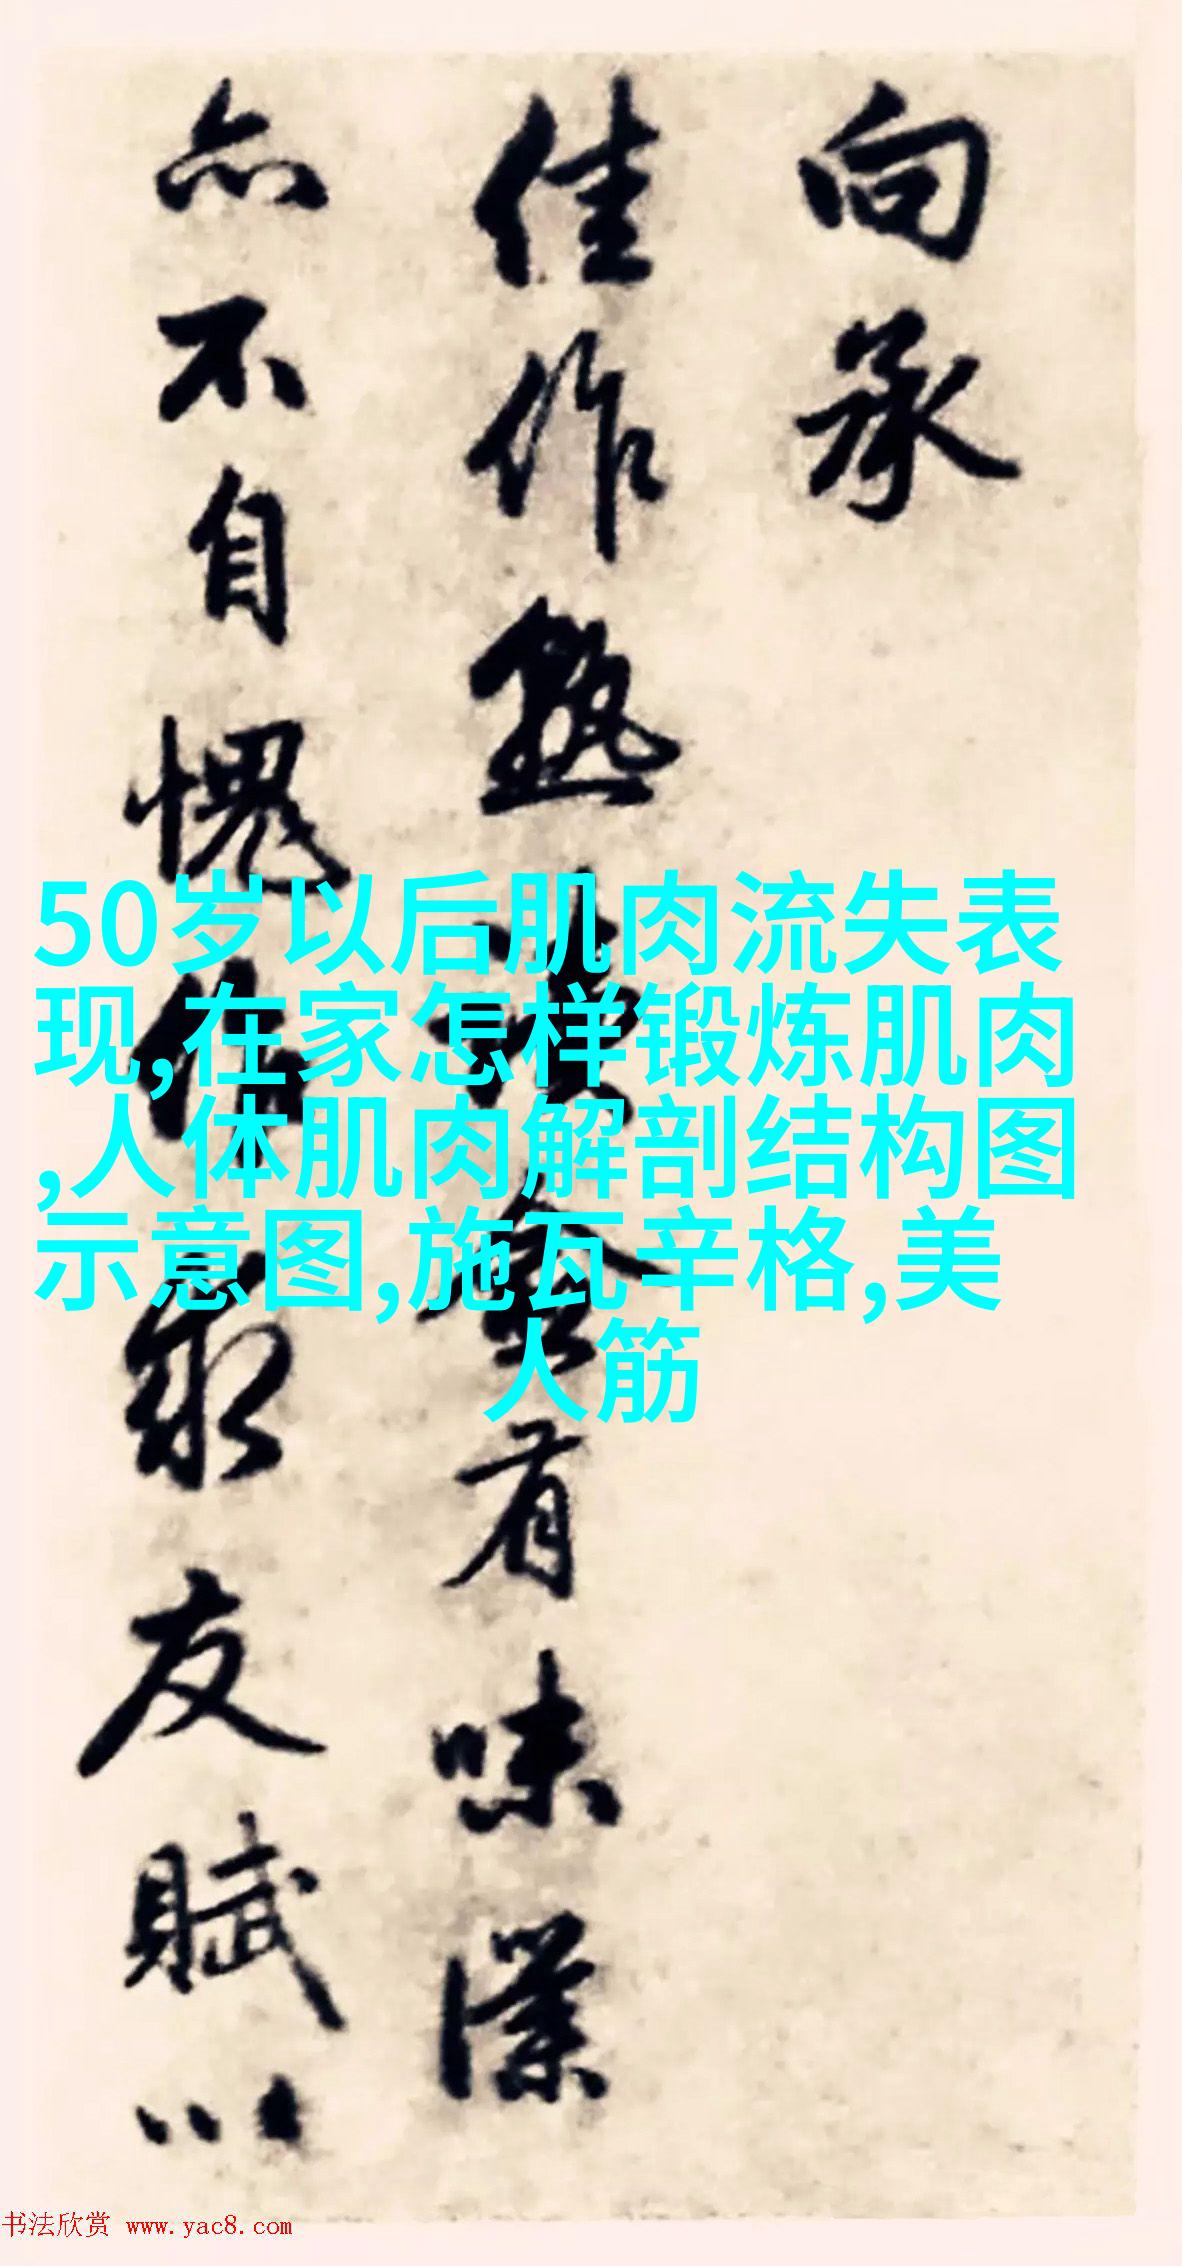 向承
佳作熟读益有味深
亦不自愧作永友赋以
50岁以后肌肉流失表
现,在家怎样锻炼肌肉
,人体肌肉解剖结构图
示意图,施瓦辛格,美
人筋
书法欣赏 www.yac8.com